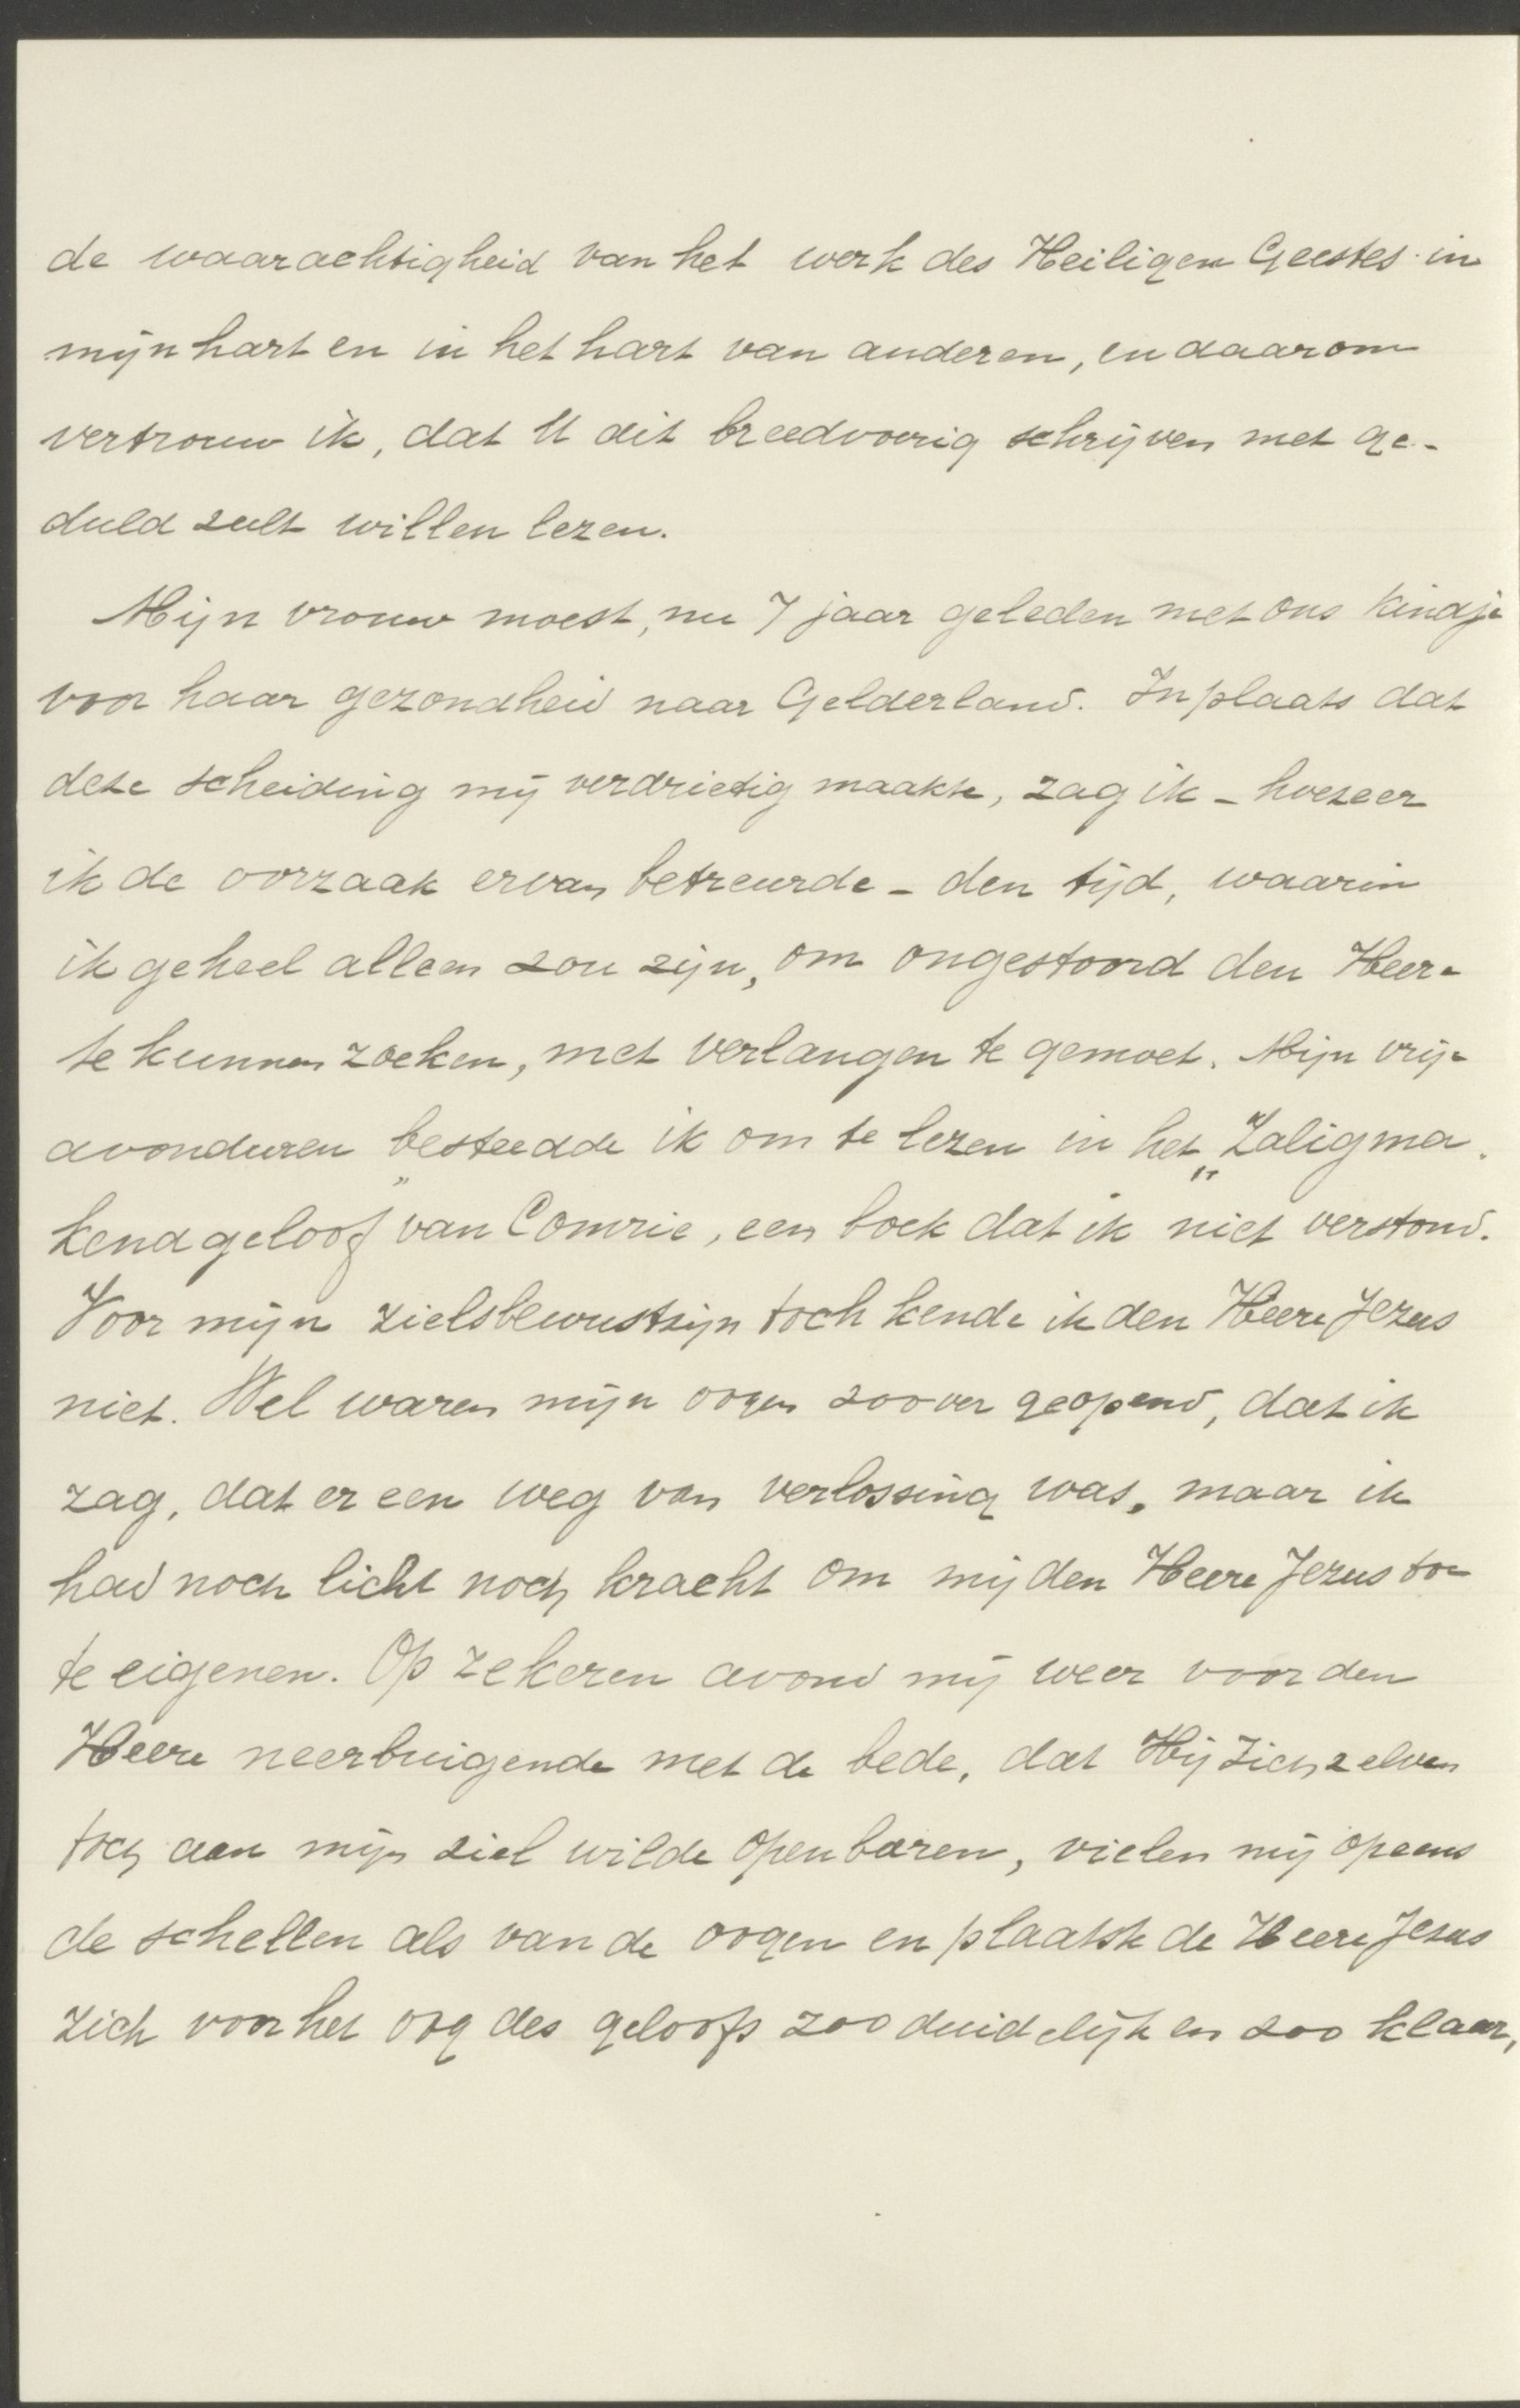 de waarachtigheid van het werk des Heiligen Geestes in
mijn hart en in het hart van anderen, en daarom
vertrouw ik, dat U dit breedvoerig schrijven met ge-
duld zult willen lezen.
Mijn vrouw moest, nu 7 jaar geleden met ons kindje
voor haar gezondheid naar Gelderland. Inplaats dat
deze scheiding mij verdrietig maakte, zag ik - hoezeer
ik de oorzaak ervan betreurde - den tijd, waarin
ik geheel alleen zou zijn, om ongestoord den Heere
te kunnen zoeken, met verlangen te gemoet. Mijn vrije
avonduren besteedde ik om te lezen in het „Zaligma-
kend geloof" van Comrie, een boek dat ik niet verstond.
Voor mijn zielsbewustzijn toch kende ik den Heere Jezus
niet. Wel waren mijn oogen zoover geopend, dat ik
zag, dat er een weg van verlossing was, maar ik
had noch licht noch kracht om mij den Heere Jezus toe
te eigenen. Op zekeren avond mij weer voor den
Heere neerbuigende met de bede, dat Hij Zichzelven
toch aan mijn ziel wilde openbaren, vielen mij opeens
de schellen als van de oogen en plaatste de Heere Jezus
Zich voor het oog des geloofs zoo duidelijk en zoo klaar,